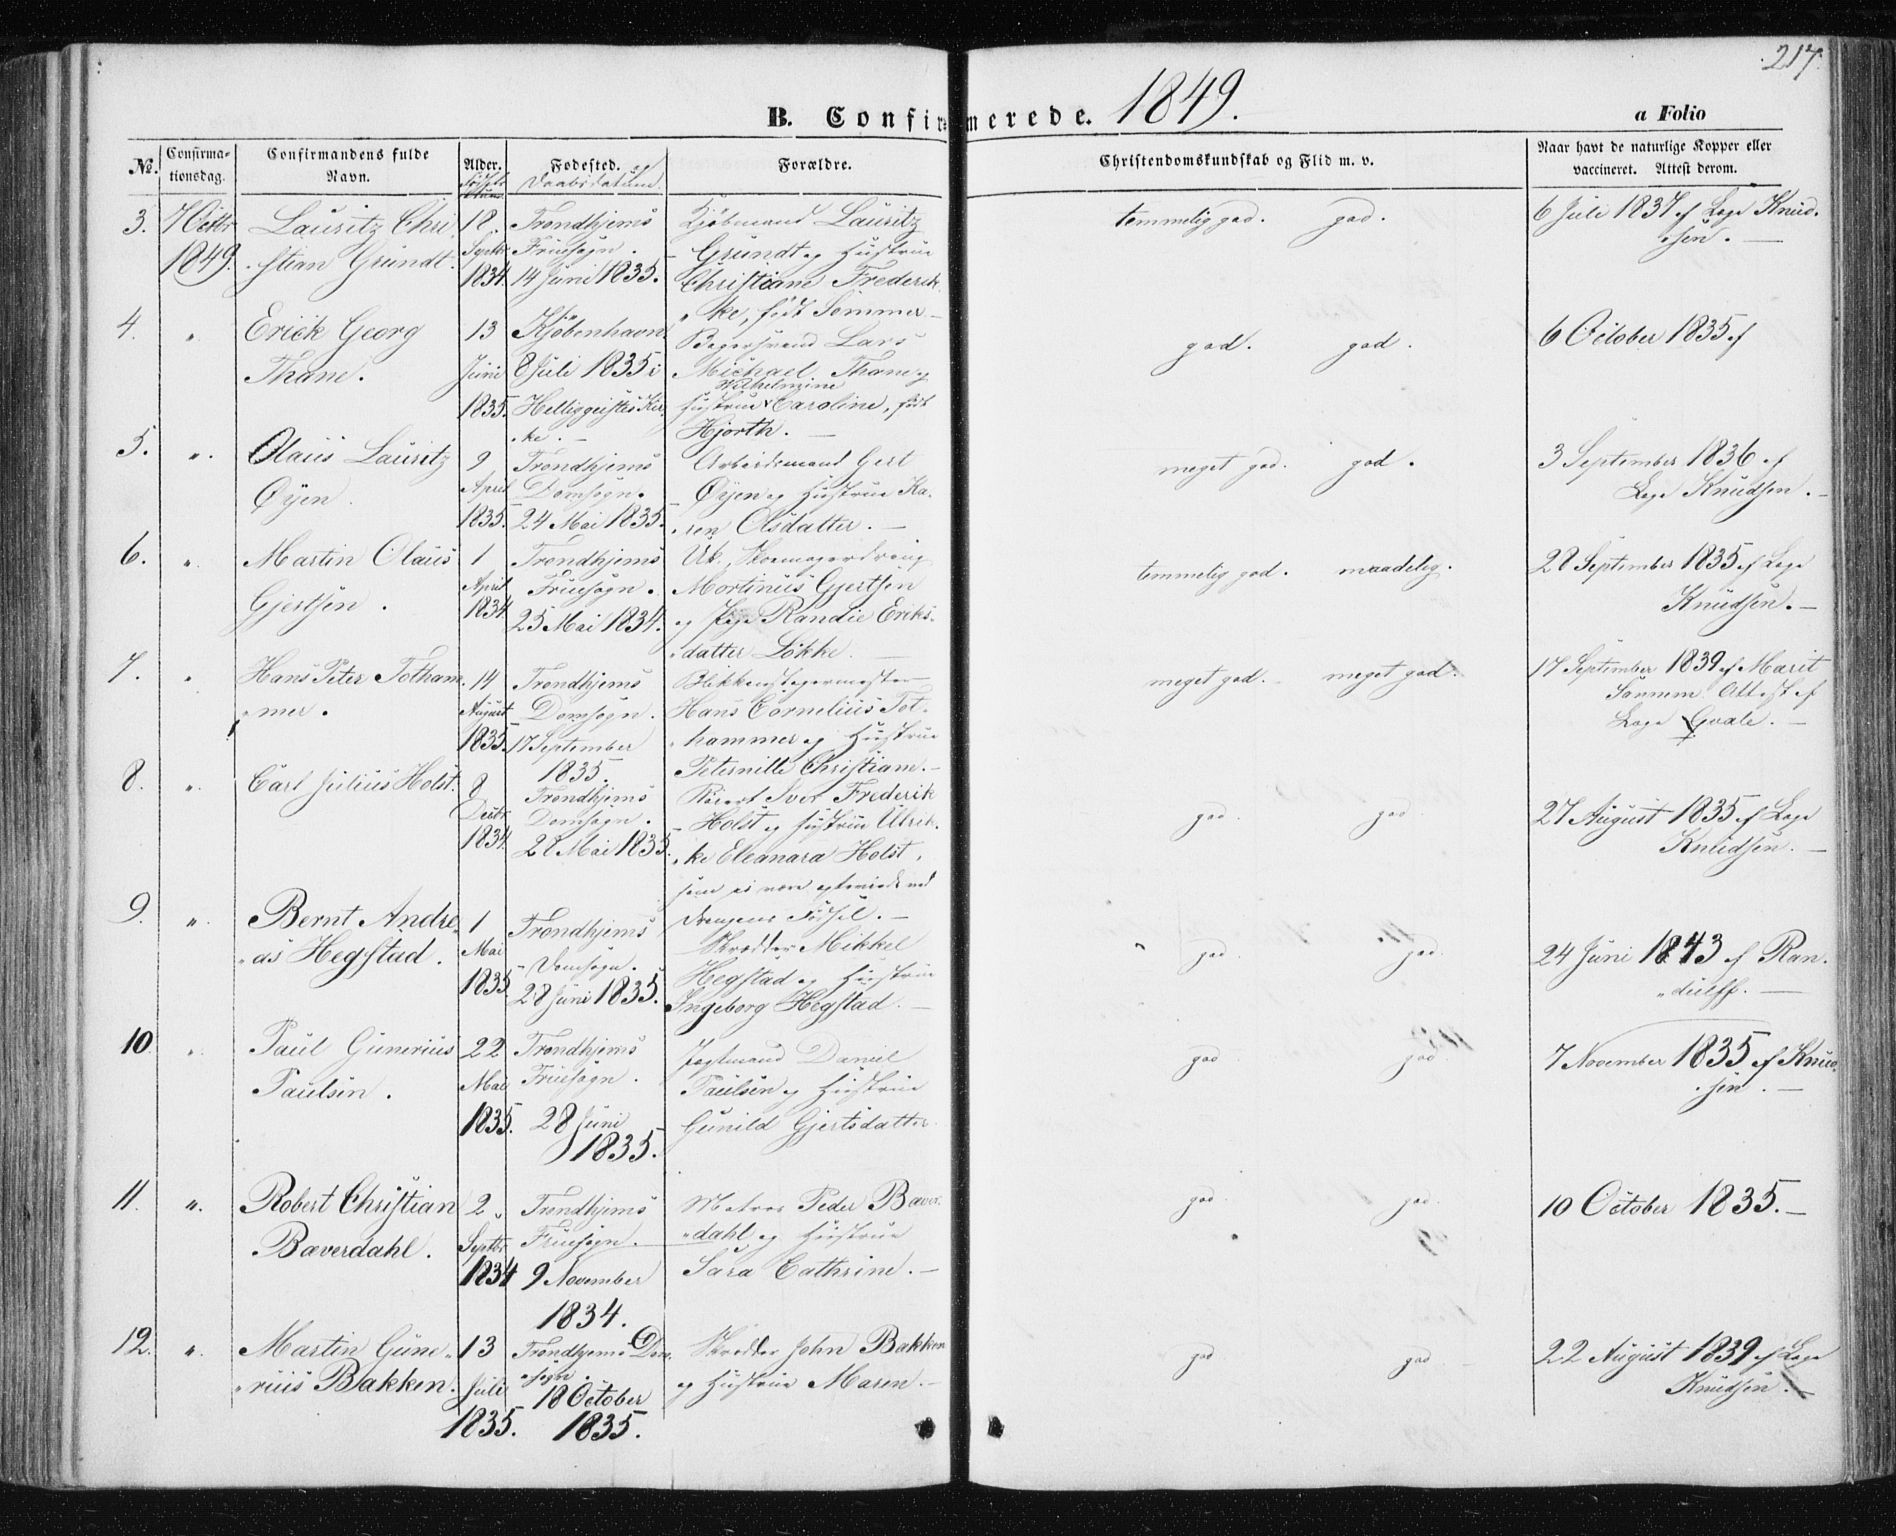 217.
B. Confirmerede. 1849. a Folio
No. Confirmationsdag. Confirmandens fulde Navn. Alder. Fødested. og Daabsdatum. Forældre. Christendomskundskab og Flid m. v. Naar havt de naturlige Kopper eller vaccineret. Attest derom.
3. 7 Octbr 1849. Lauritz Chri
stian Grundt.
18. Septbr 1834.
Trondhjems
Fruesogn.
14 Juni 1835.
Kjøbmand Lauritz
Grundt og Hustrue
Christiane Frederik
ke, født Sommer
temmelig god. god.
6 Juli 1837 af Læge Knud
sen.
4. " Erick Georg
Thane.
13 Juni 1835.
Kjøbenhavn
8 Juli 1835 i
Helliggeistes Kir
ke.
Bagersvend Lars
Michael Thane og
Hustrue Wilhelmine Caroline, født
Hjorth.
god. god.
6 October 1835 af
5. " Olaus Lauritz
Øyen
9 April 1835.
Trondhjems
Domsogn.
24 Mai 1835.
Arbeidsmand Gert
Øyen og Hustrue Ka
ren Olsdatter.
meget god. god.
3 September 1836 af
Læge Knudsen.
6. " Martin Olaus
Gjertsen.
1 April 1834
Trondhjems
Fruesogn.
25 Mai 1834.
Uk. Skomagerdreng
Mortinus Gjertsen
og Pige Randie Eriks
datter Løkke.
temmelig god. maadelig.
28 September 1835 af Læge
Knudsen.
7. " Hans Peter Totham
mer.
14 August 1835.
Trondhjems
Domsogn.
17 September
1835.
Blikkenslagermester
Hans Cornelius Tot
hammer og Hustrue
Peternille Christiane.
meget god. meget god.
17 September 1839 af Marit
Sannem Attest af
Læge Qvale.
8. " Carl Julius Holst.
8 Decbr 1834.
Trondhjems
Domsogn.
28 Mai 1835.
Iver Frederik
Holst og Hustrue Ulrik
ke Eleanara Holst,
som ei vare egteviede ved
Drengens Fødsel.
god. god.
27 August 1835 af Læge
Knudsen.
9. " Bernt Andre
as Hegstad.
1 Mai 1835
Trondhjems
Domsogn.
28 Juni 1835.
Skrædder Mikkel
Hegstad og Hustrue
Ingeborg Hegstad.
god. god.
24 Juni 1843 af Ran
dulff.
10. " Paul Gunerius
Paulsen.
22 Mai 1835.
Trondhjems
Fruesogn.
28 Juni
1835.
Daniel
Paulsen og Hustrue
Gunild Gjertsdatter
god god
7 November 1835 af Knud
sen.
11. " Robert Christian
Bæverdahl.
2 Septbr 1834
Trondhjems
Fruesogn.
9 November
1834.
Matros Peder Bæver
dahl og Hustrue
Sara Cathrine.
god. god.
10 October 1835.
12. " Martin Gune
rius Bakken.
13 Juli 1835.
Trondhjems Dom
sogn.
18 October
1835.
Skrædder John Bakken
og Hustrue Maren.
god god
22 August 1839 af Læge
Knudsen.